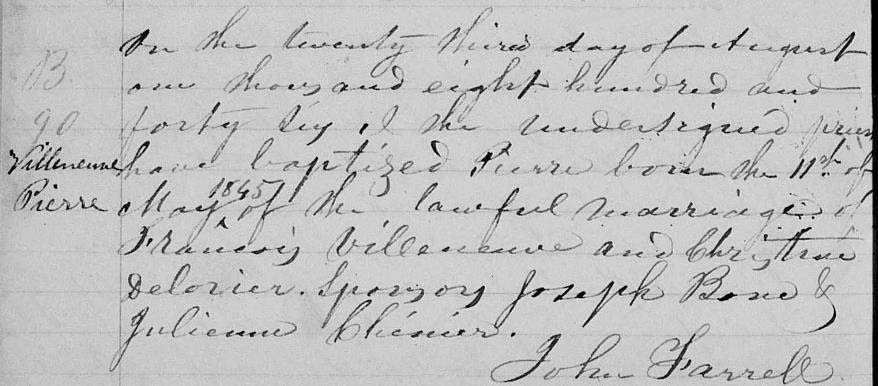 On the twenty third day of August
B. one thousand eight hundred and
90 forty six, I the undersigned priest
Villeneuve have baptized Pierre born the 11st of
Pierre May 1845 of the lawful marriage of
François Villeneuve and Christine
Delorier. Sponsors Joseph Bone &
Julienne Chénier.
John Farrell